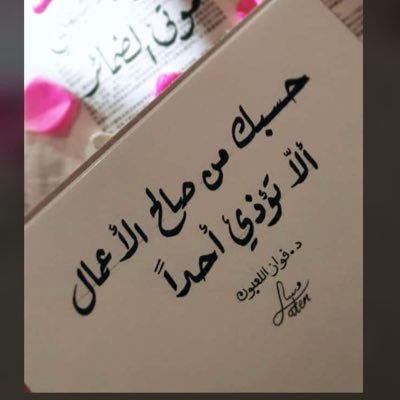 موتى الضمائر
حسبك من صالح الأعمال
ألّا تؤذيَ أحداً
د. فواز اللعبون